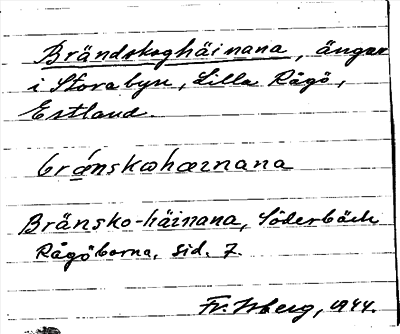 Brändskoghäinana, ängar
i Storabyn, Lilla Rågö,
Estland.
bránskωhæɪnana
Bränsko-häinana, Söderbäck
Rågöborna, sid. 7.
Fr. Isberg, 1944.